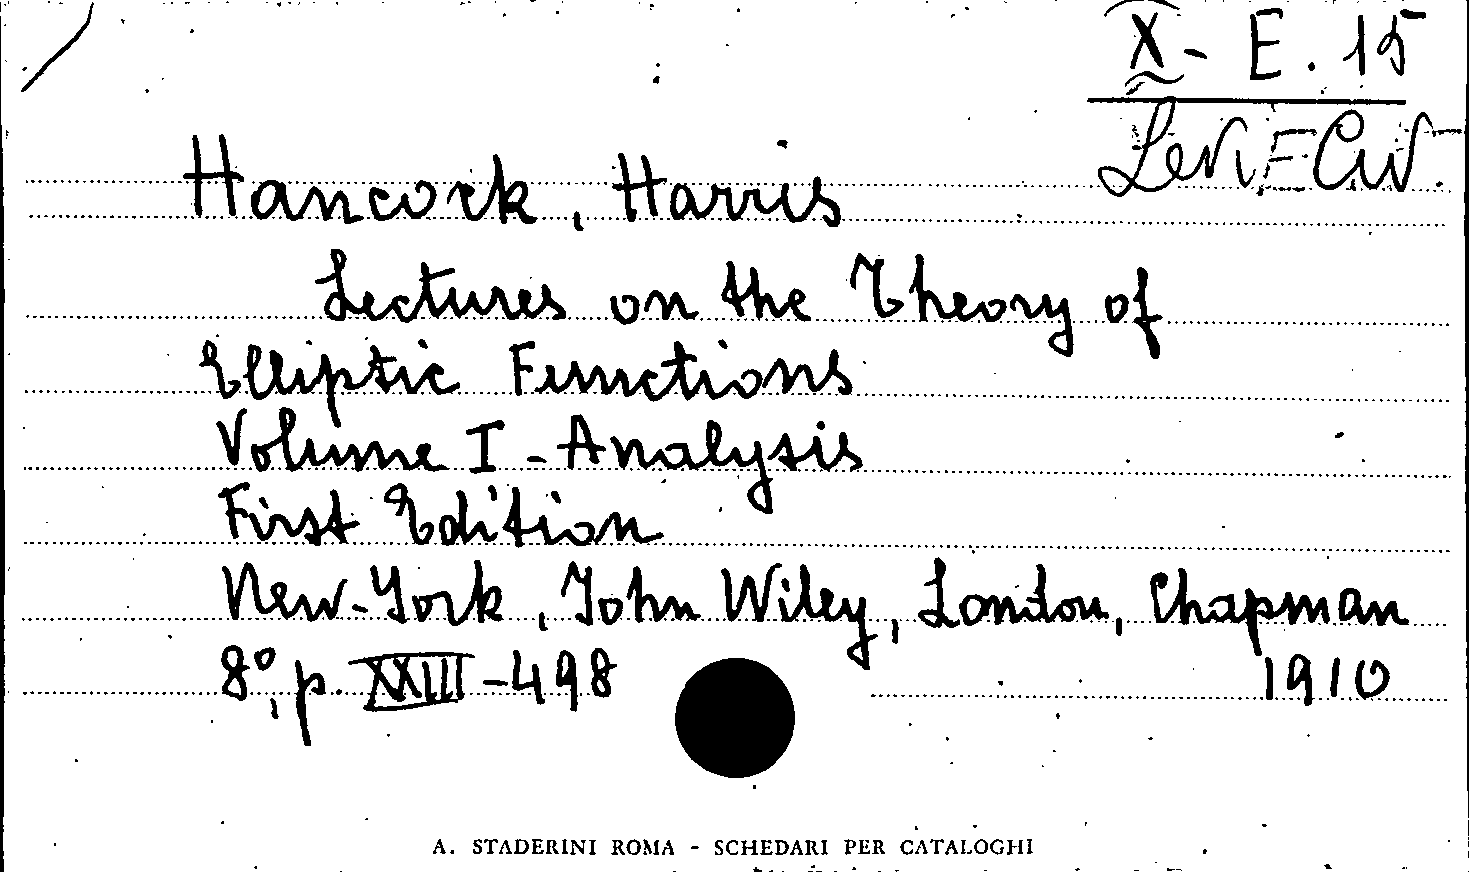 X - E. 15
Hancock, Harris
Lectures on the Theory of
Elliptic Functions
Volume I - Analysis
First Edition
New-York, John Wiley, London, Chapman
8°, p. XXIII - 498 1910
A. STADERINI ROMA - SCHEDARI PER CATALOGHI